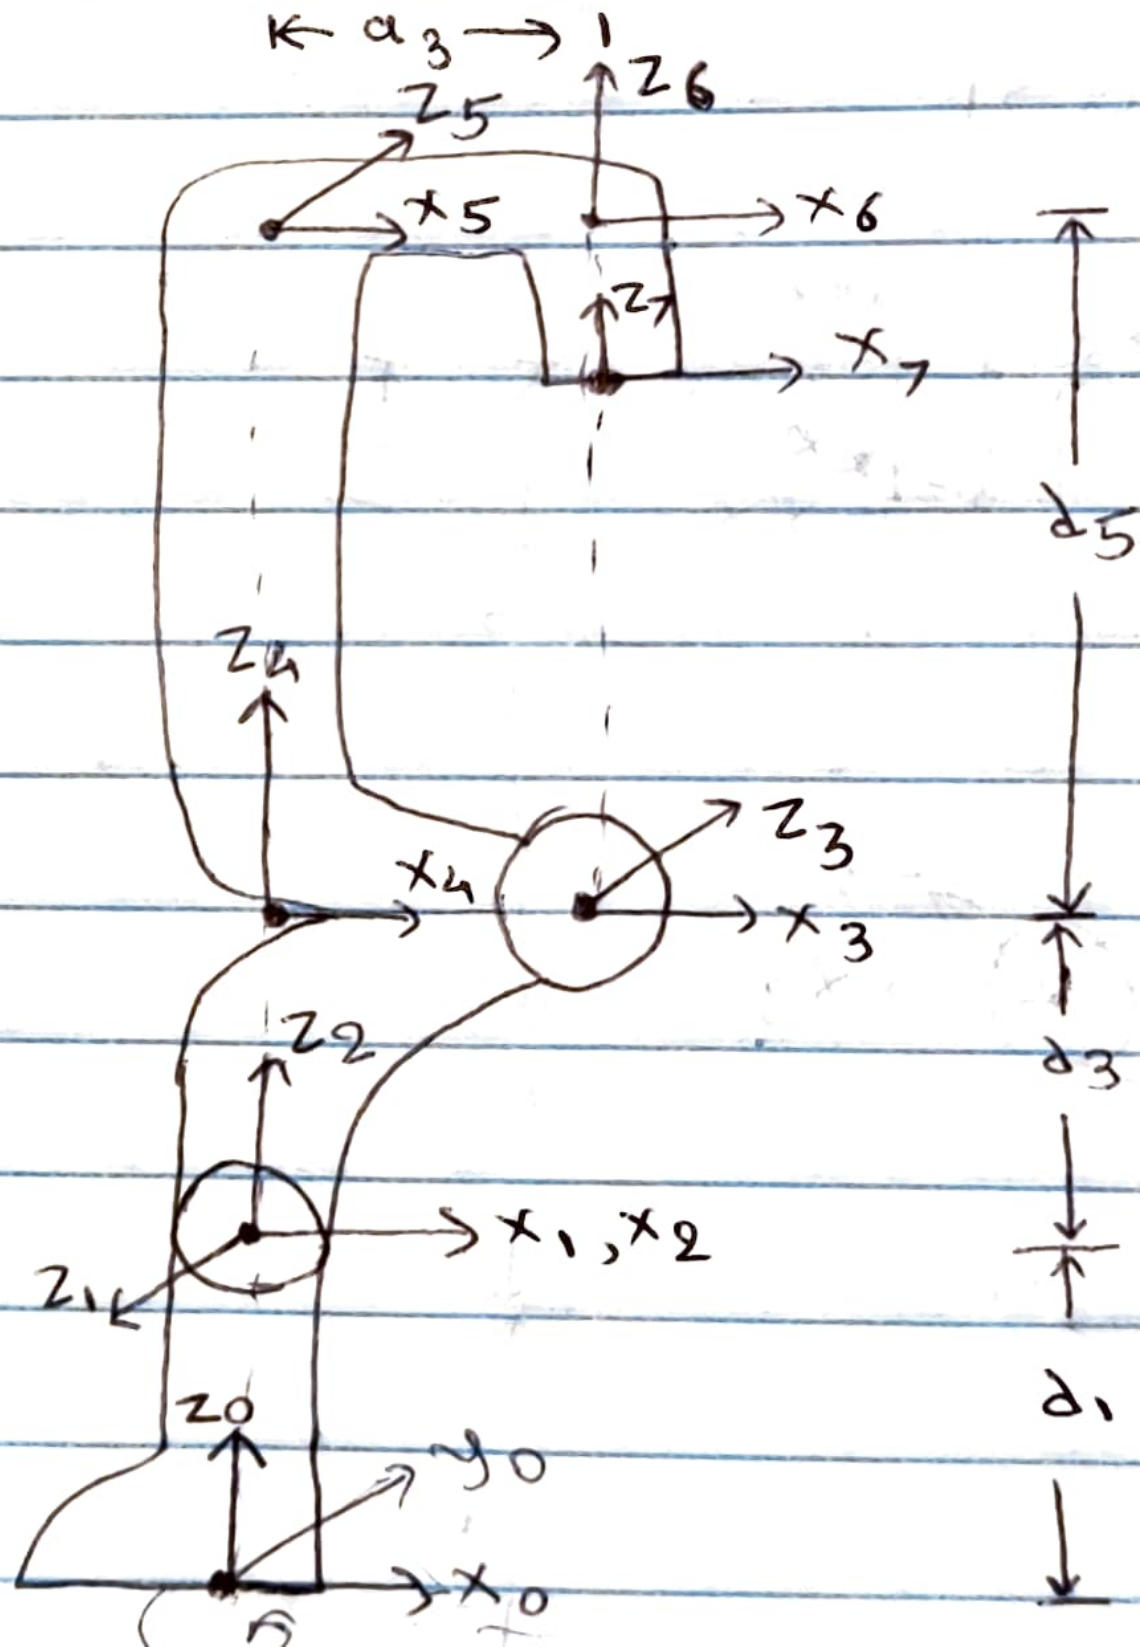 a3
z6
z5
x5
x6
z7
x7
d5
z4
z3
x4
x3
z2
d3
x1, x2
z1
d1
z0
y0
x0